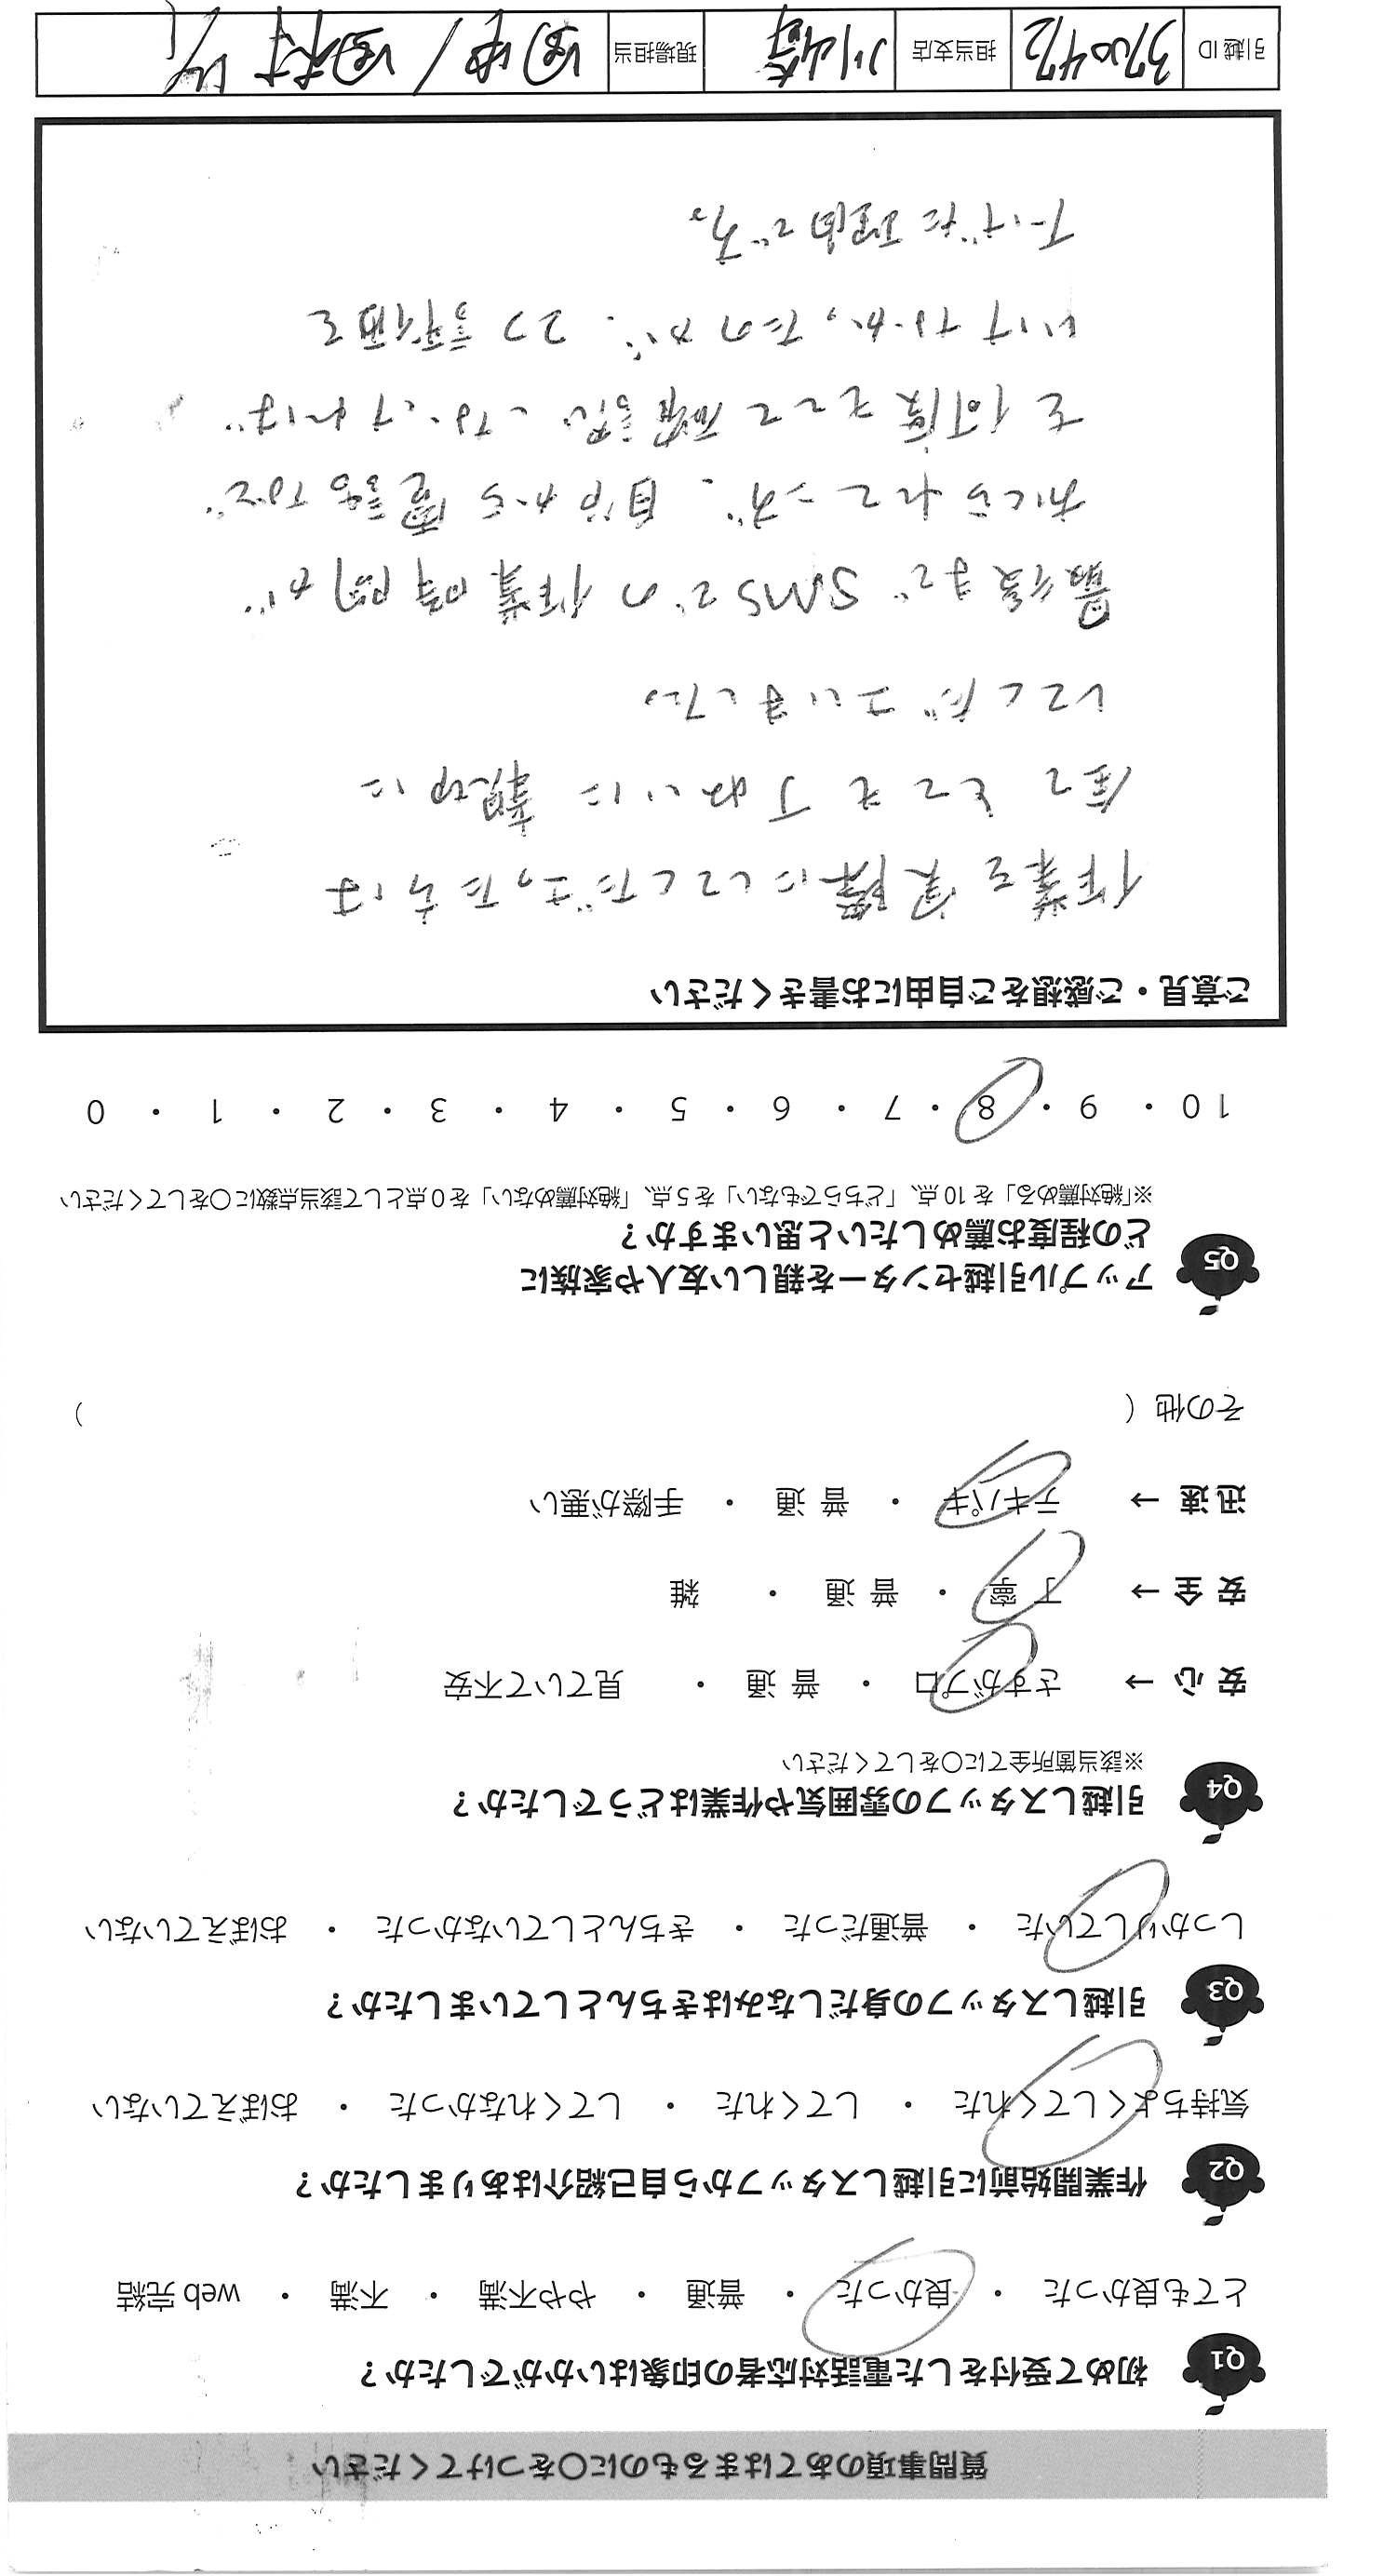 質問事項のあてはまるものに○をつけてください
Q1 初めて受付をした電話対応者の印象はいかがでしたか？
とても良かった ・ 良かった ・ 普通 ・ やや不満 ・ 不満 ・ web 完結
Q2 作業開始前に引越しスタッフから自己紹介はありましたか？
気持ちよくしてくれた ・ してくれた ・ してくれなかった ・ おぼえていない
Q3 引越しスタッフの身だしなみはきちんとしていましたか？
しっかりしていた ・ 普通だった ・ きちんとしていなかった ・ おぼえていない
Q4 引越しスタッフの雰囲気や作業はどうでしたか？
※該当箇所全てに○をしてください
安心 → さすがプロ ・ 普通 ・ 見ていて不安
安全 → 丁寧 ・ 普通 ・ 雑
迅速 → テキパキ ・ 普通 ・ 手際が悪い
その他（ ）
Q5 アップル引越センターを親しい友人や家族に
どの程度お薦めしたいと思いますか？
※「絶対薦める」を10点、「どちらでもない」を5点、「絶対薦めない」を0点として該当点数に○をしてください
10 ・ 9 ・ 8 ・ 7 ・ 6 ・ 5 ・ 4 ・ 3 ・ 2 ・ 1 ・ 0
ご意見・ご感想をご自由にお書きください
作業を実際にしてくださった方は
全てとても丁ねいに親切に
してくださいました。
最後まで SMSでの作業時間が
おくられてこず、自分から電話なで
も何度もして確認しなければ
いけなかったのが、2つ評価を
下げた理由です。
引越ID 370042 担当支店 川崎 現場担当 田中 /